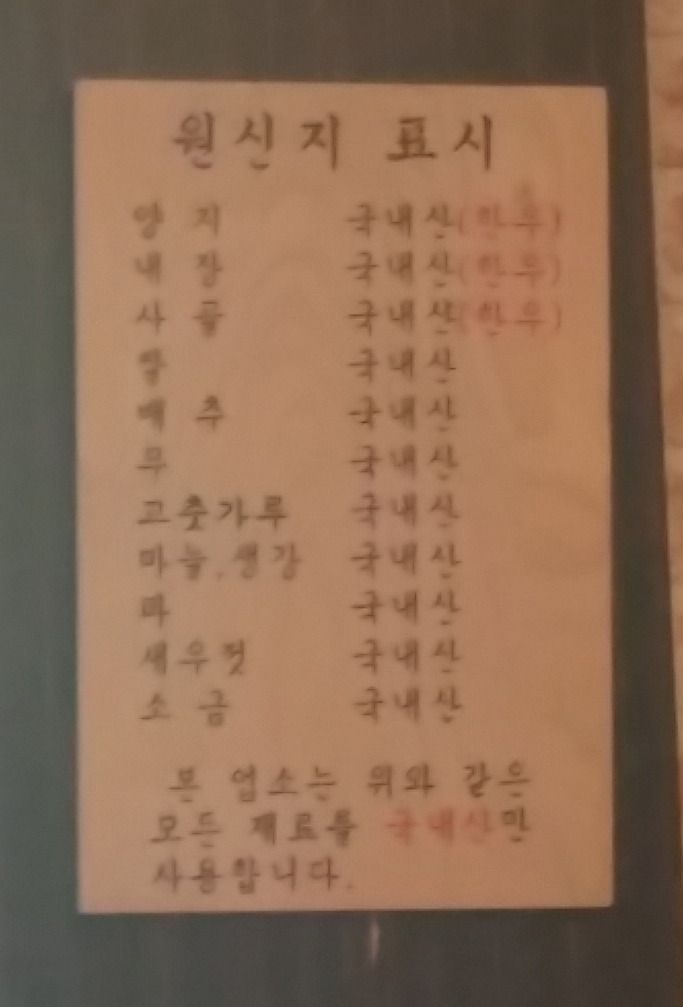 원산지 표시
양 지 국내산(한우)
내 장 국내산(한우)
사 골 국내산(한우)
쌀 국내산
배 추 국내산
무 국내산
고춧가루 국내산
마늘.생강 국내산
파 국내산
새우젓 국내산
소 금 국내산
본 업소는 위와 같은
모든 재료를 국내산만
사용합니다.